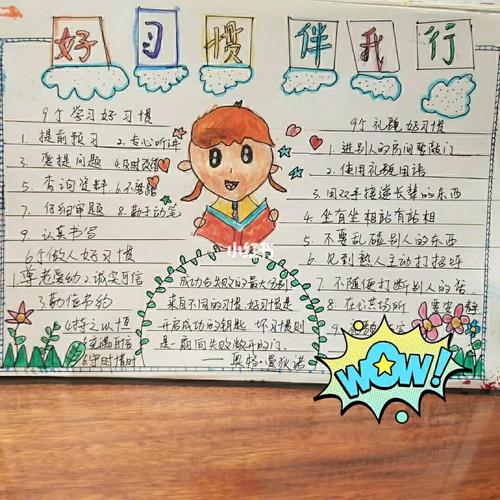 好习惯伴我行
9个学习好习惯
1. 提前预习 2. 专心听讲
3. 要提问题 4. 及时改错
5. 查询资料 6. 不
7. 仔细审题 8. 勤于动笔
9. 认真书写
6个做人好习惯
1 尊老爱幼 2. 诚实守信
3. 勤俭节约
4 持之以恒
5 充满自信
6 守时惜时
成功与失败的最大分别
来自不同的习惯。好习惯是
开启成功的钥匙，坏习惯则
是一扇向失败敞开的门。
——奥格·曼狄诺
9个礼貌好习惯
1. 进别人的房间要敲门
2. 使用礼貌用语
3. 用双手接递长辈的东西
4. 坐有坐相站有站相
5. 不要乱碰别人的东西
6. 见到熟人主动打招呼
7. 不随便打断别人的话
8. 在公共场所
9.
小红书
WOW!